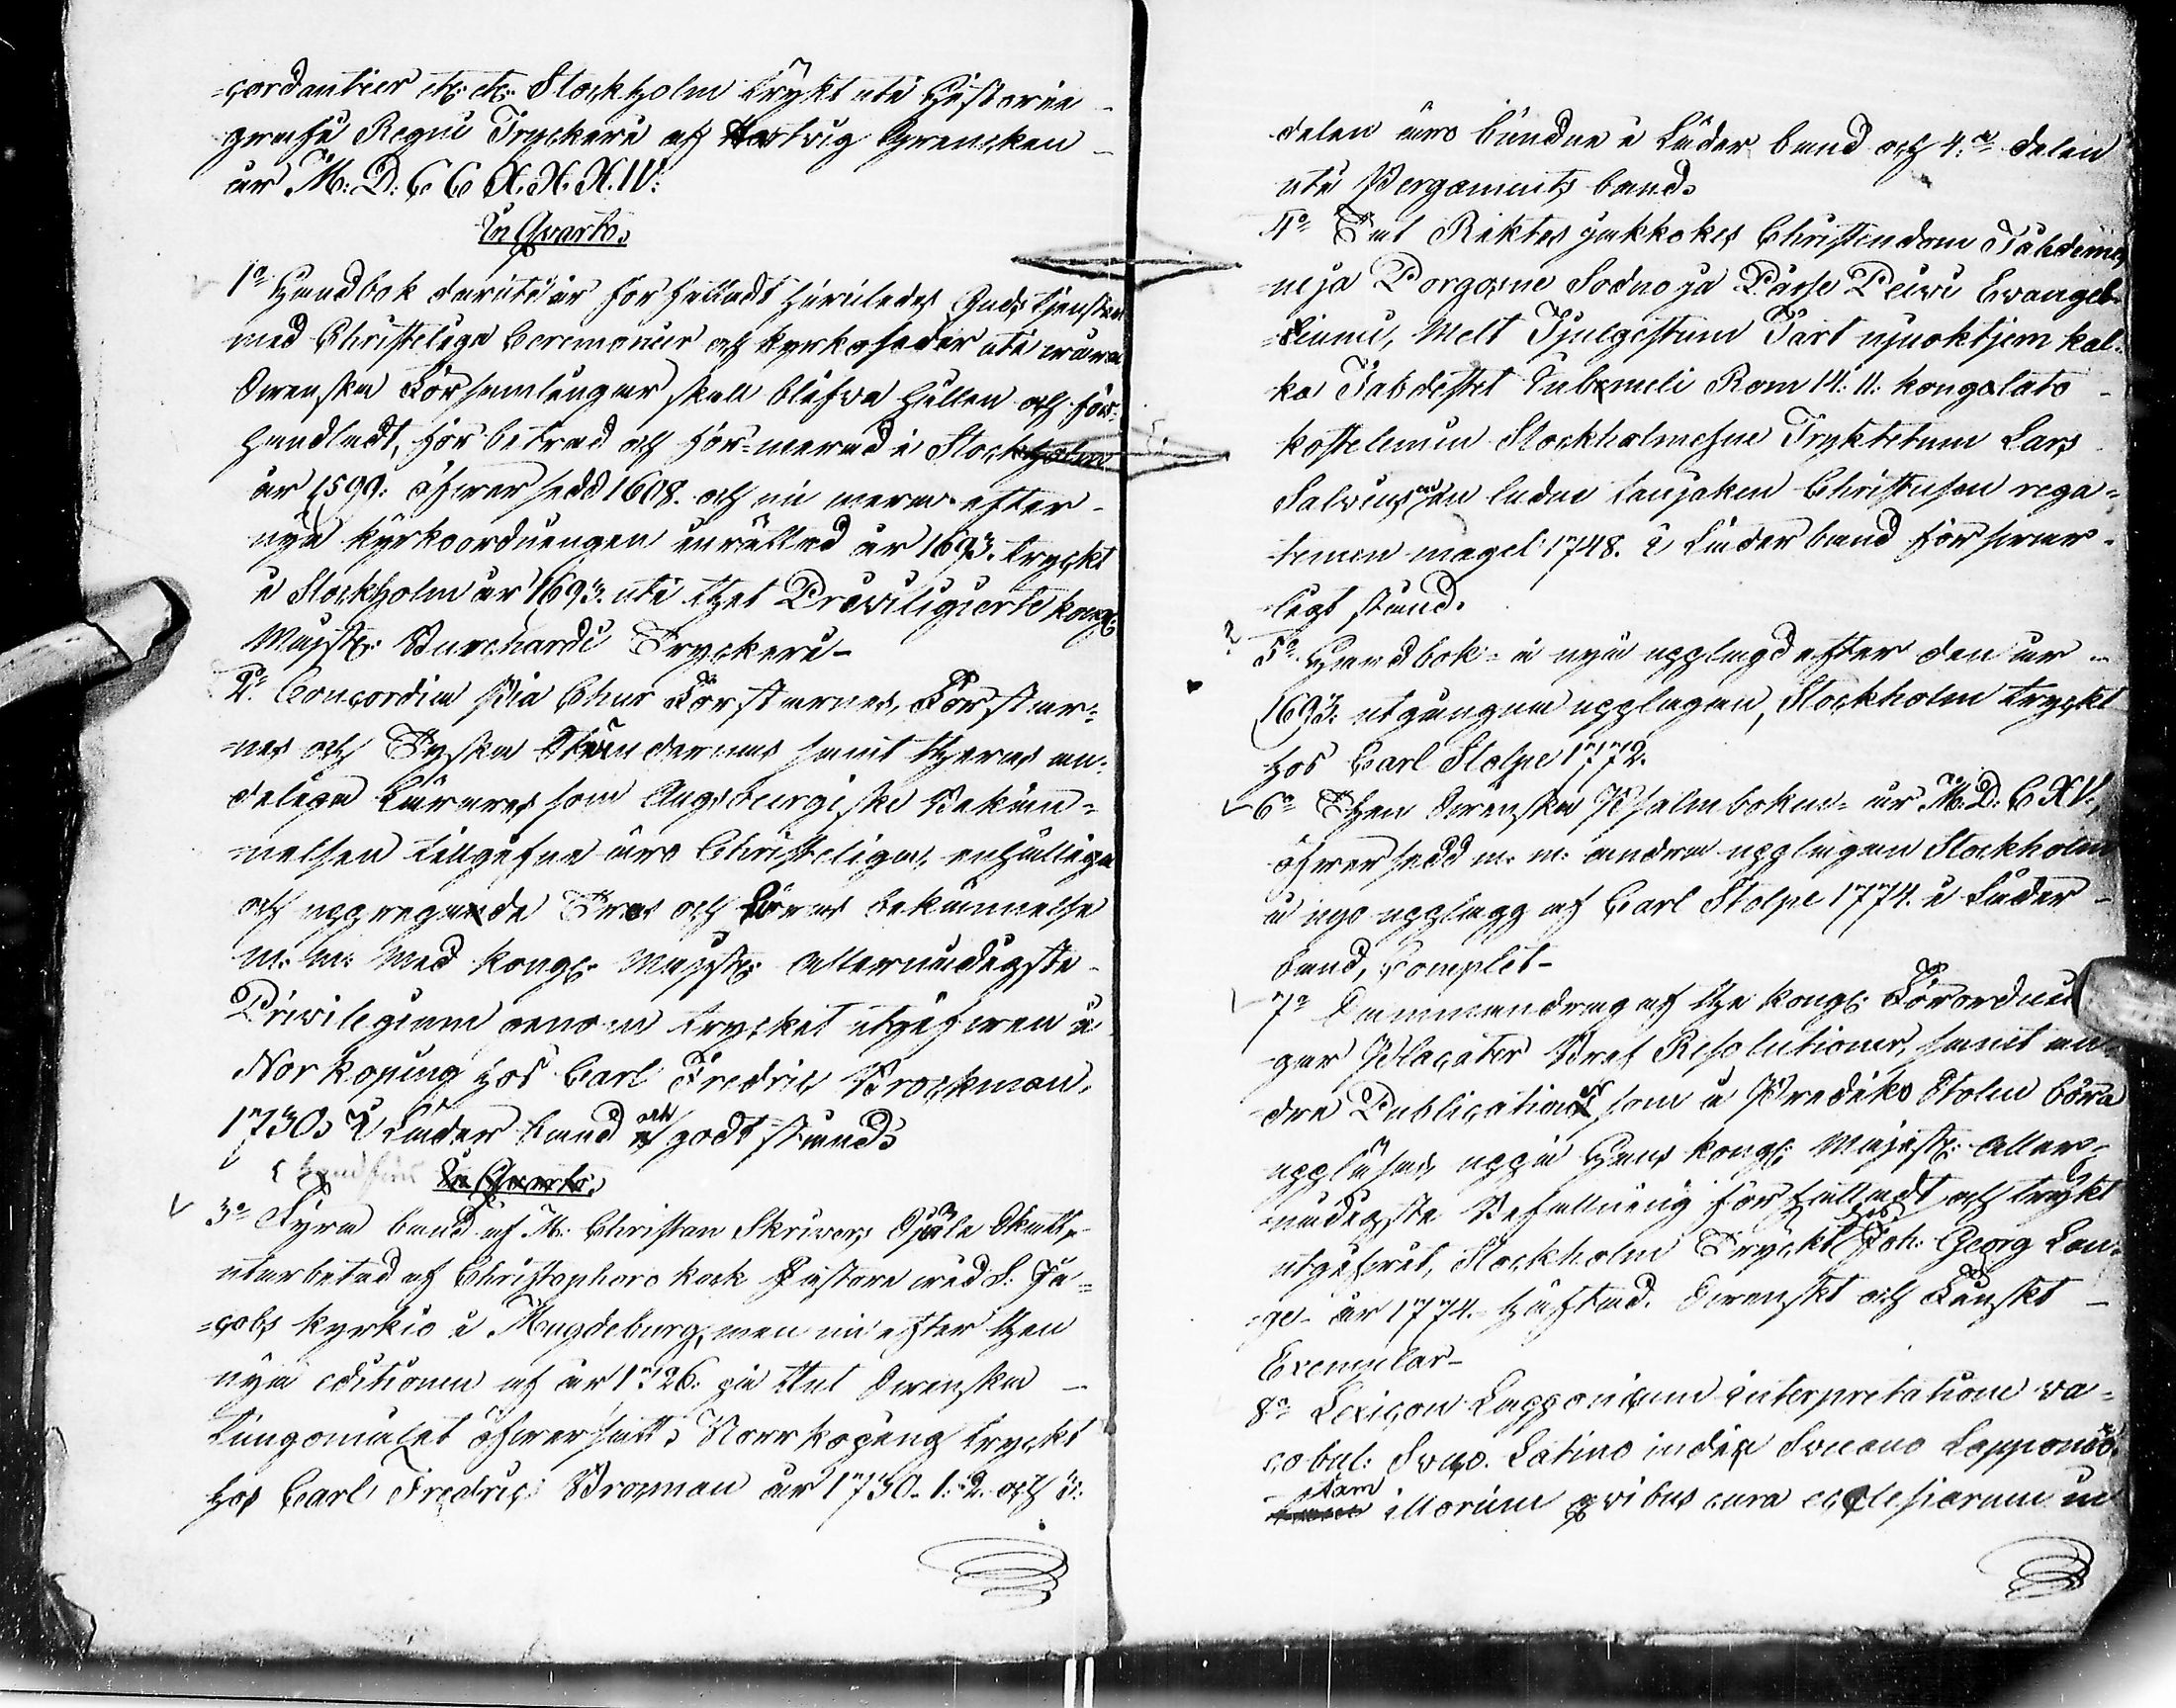 =cordantier etc: etc: Stockholm trykt uti Historiæ-
grafi Regni Tryckeri af Hartvig Grencken
år M: D: C C X. X. X. IV:
In Quarto.
1o Handbok deruti är författadt huruledes Gudstjensten
med Christeliga Ceremonier och kyrkoseder uti wåra
Swenska Församlingar skall blifva hållen och för-
handladt, förbetrad och förmerad i Stockholm
år 1599: öfwersedd 1608. och nu mera efter
nya kyrkoordningen inrättad år 1693. tryckt
i Stockholm år 1693. uti thet Privilegierte kongl:
Majst: Burchardi Tryckeri-
2o Concordia Pia Chur Förstarnes, Förstar-
nes och Tyska Ständernas samt theras an-
deliga Lärares som Augsburgiske Bekän-
nelsen tillgifne äro Christeliga, enhälliga
och upprepade Tros och Läras bekännelse
m. m: med kongl: Majst: allernådigste
Privilegium genom trycket utgifwen i
Norkoping hos Carl Fredric Brockman.
1730. I Läder band och godt stånd.
In Quarto.
3o Fyra band af M: Christian Skrivers Själe Skatt,
utarbetad af Christophoro kock Pastore wid S: Ja-
=cobs kyrkio i Magdeburg, men nu efter then
nya editionen af år 1726. på thet Swenska
Tungomålet öfwersatt. Norrkoping tryckt
hos Carl Fredric Broeman år 1730. 1: 2. och 3:
delen äro bundne i Läder band och 4:de delen
uti Pergaments band.
4o Tat Riktes jakkokes Christendom Tabdeme,
neja Porgosne Sodno ja Parse Peiwi Evangel-
iumi, Melt Tjulgestum Tart njuoktjem kal-
ka Tabdestet Jubmeli Rom 14: 11: kongolato
kostelemin Stockholmesne Tryktetum Lars
Salvius en ludne taujaken Christusen rega-
temen magel 1748. i Läder band förswar-
ligt stånd.
? 5o Handbok å nya upplagd efter den år
1693: utgångna upplagan, Stockholm tryckt
hos Carl Stolpe 1772.
6o Then Swenska Psalmboken år M: D: C XV,
öfwersedd m. m: andra upplagan Stockholm
å nyo upplagg af Carl Stolpe 1774. i Läder
band, Complet-
7o Sammandrag af the kongl: Förordnin
gar Placater Bref Resolutioner, samt an-
dre Publicationer som å Predikostolen böra
uppläsas, uppå Hans kongl: Majest: aller-
nådigste Befallning författadt och trykt
utgifwet, Stockholm Tryckt hos Joh: Georg Lan-
ge år 1774. häftad. Swenskt och Finskt
Exemplar-
8o Lexicon Lapponicum interpretatione vo-
cobul: Sveco. Latino indice Svecano Lapponico
tam illorum qvibus cura ecclesiarum in